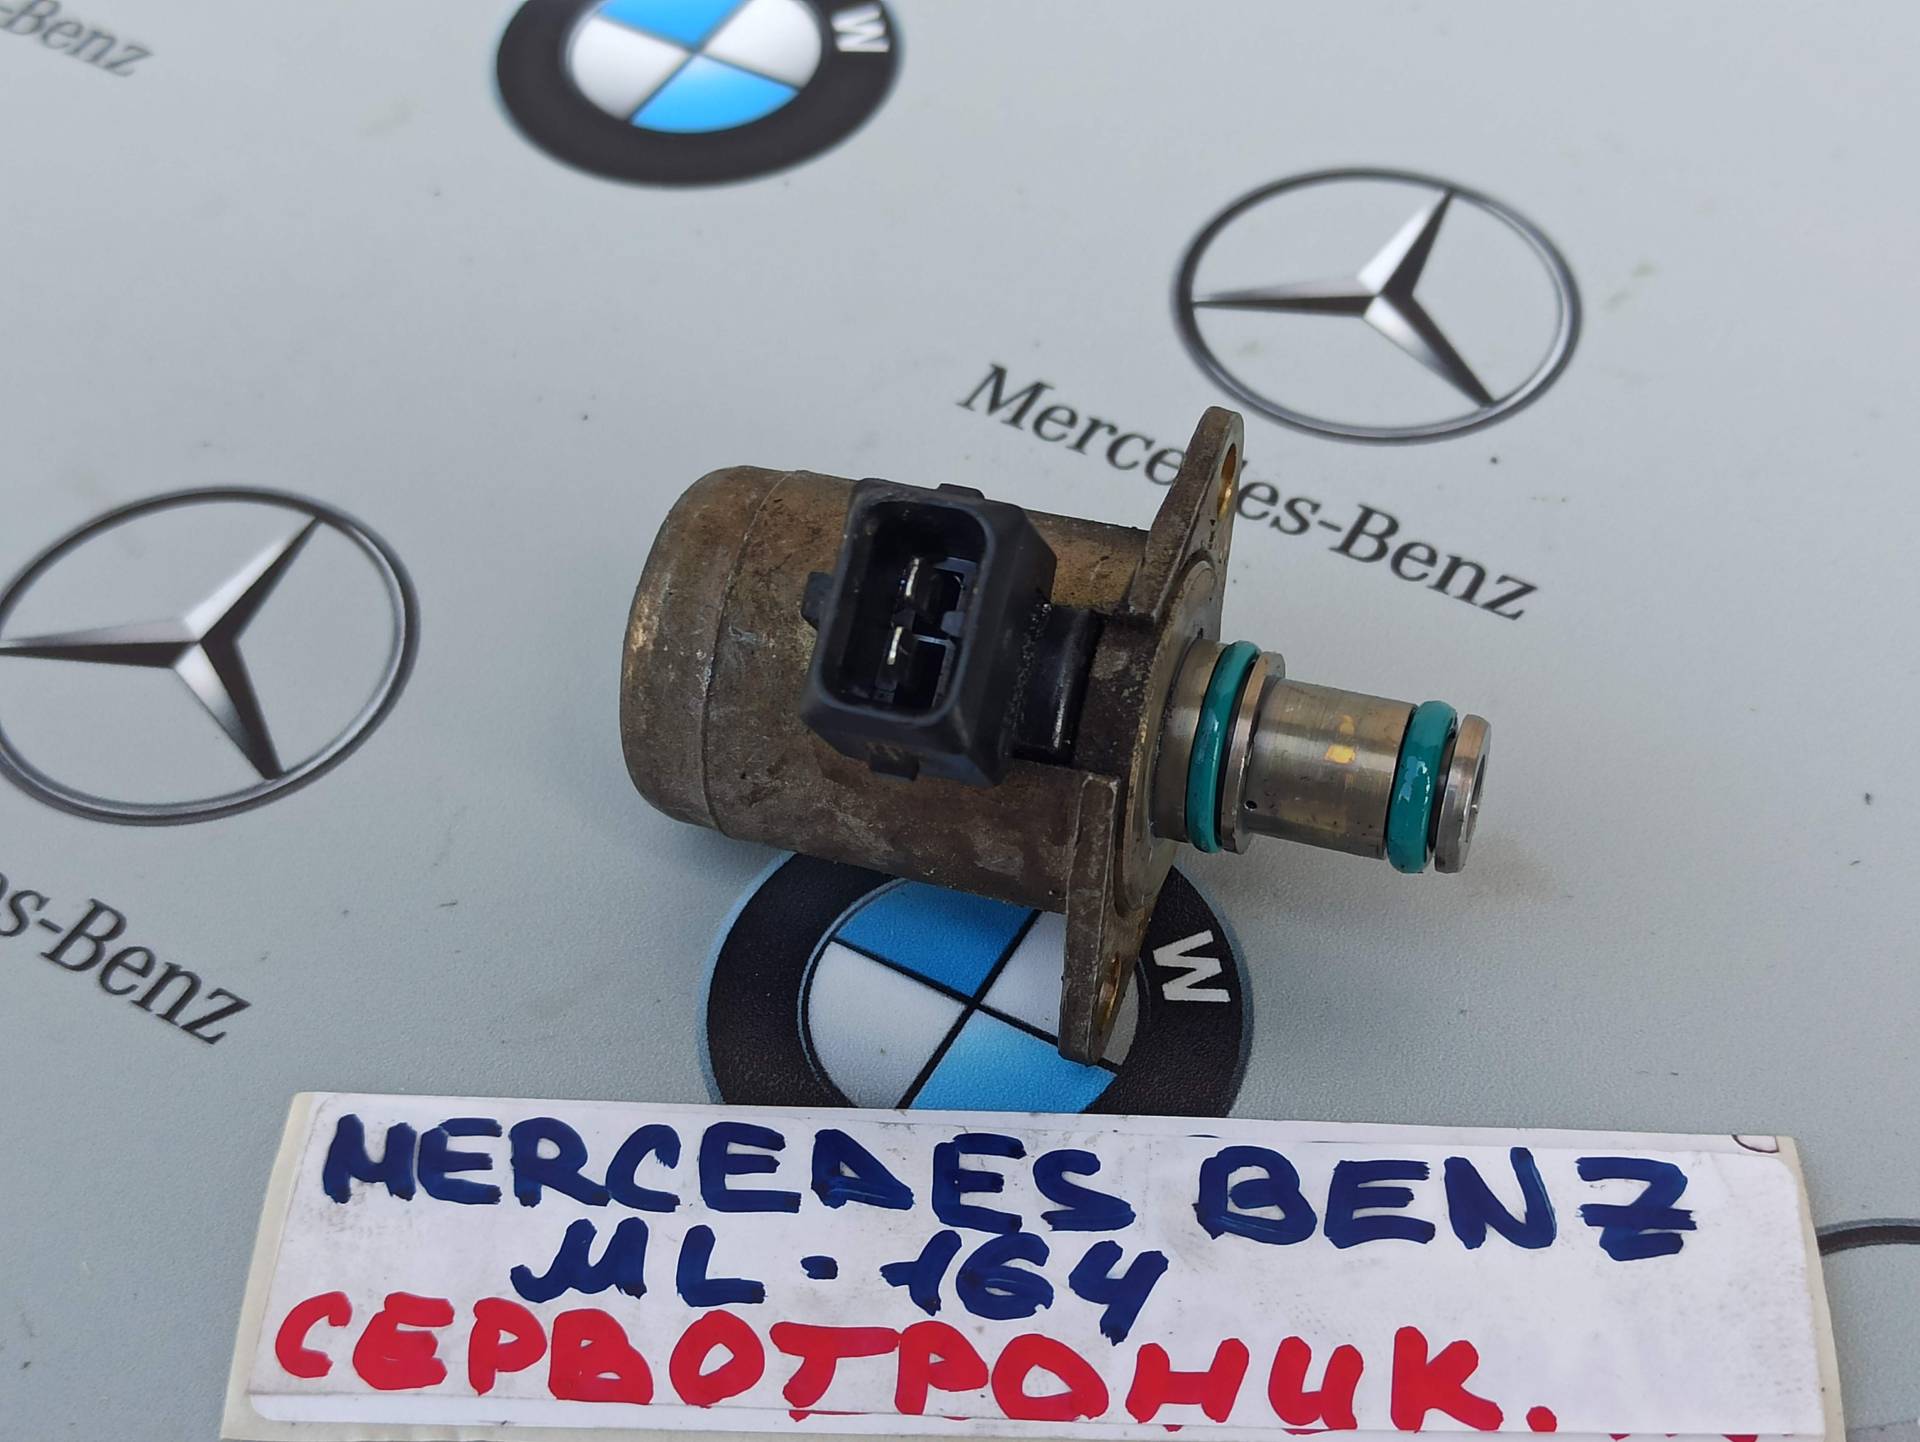 -Benz
W
Mercedes-Benz
es-Benz
W
MERCEDES BENZ
ML · 164
СЕРВОТРОНИК.